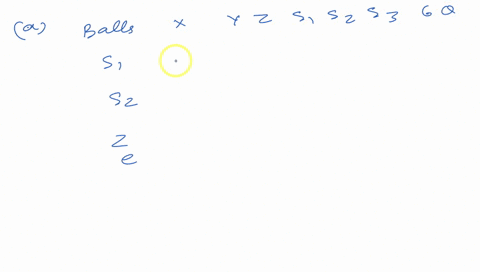 (a) Balls x Y Z S1 S2 S3 6 Q
S1
S2
Z
e